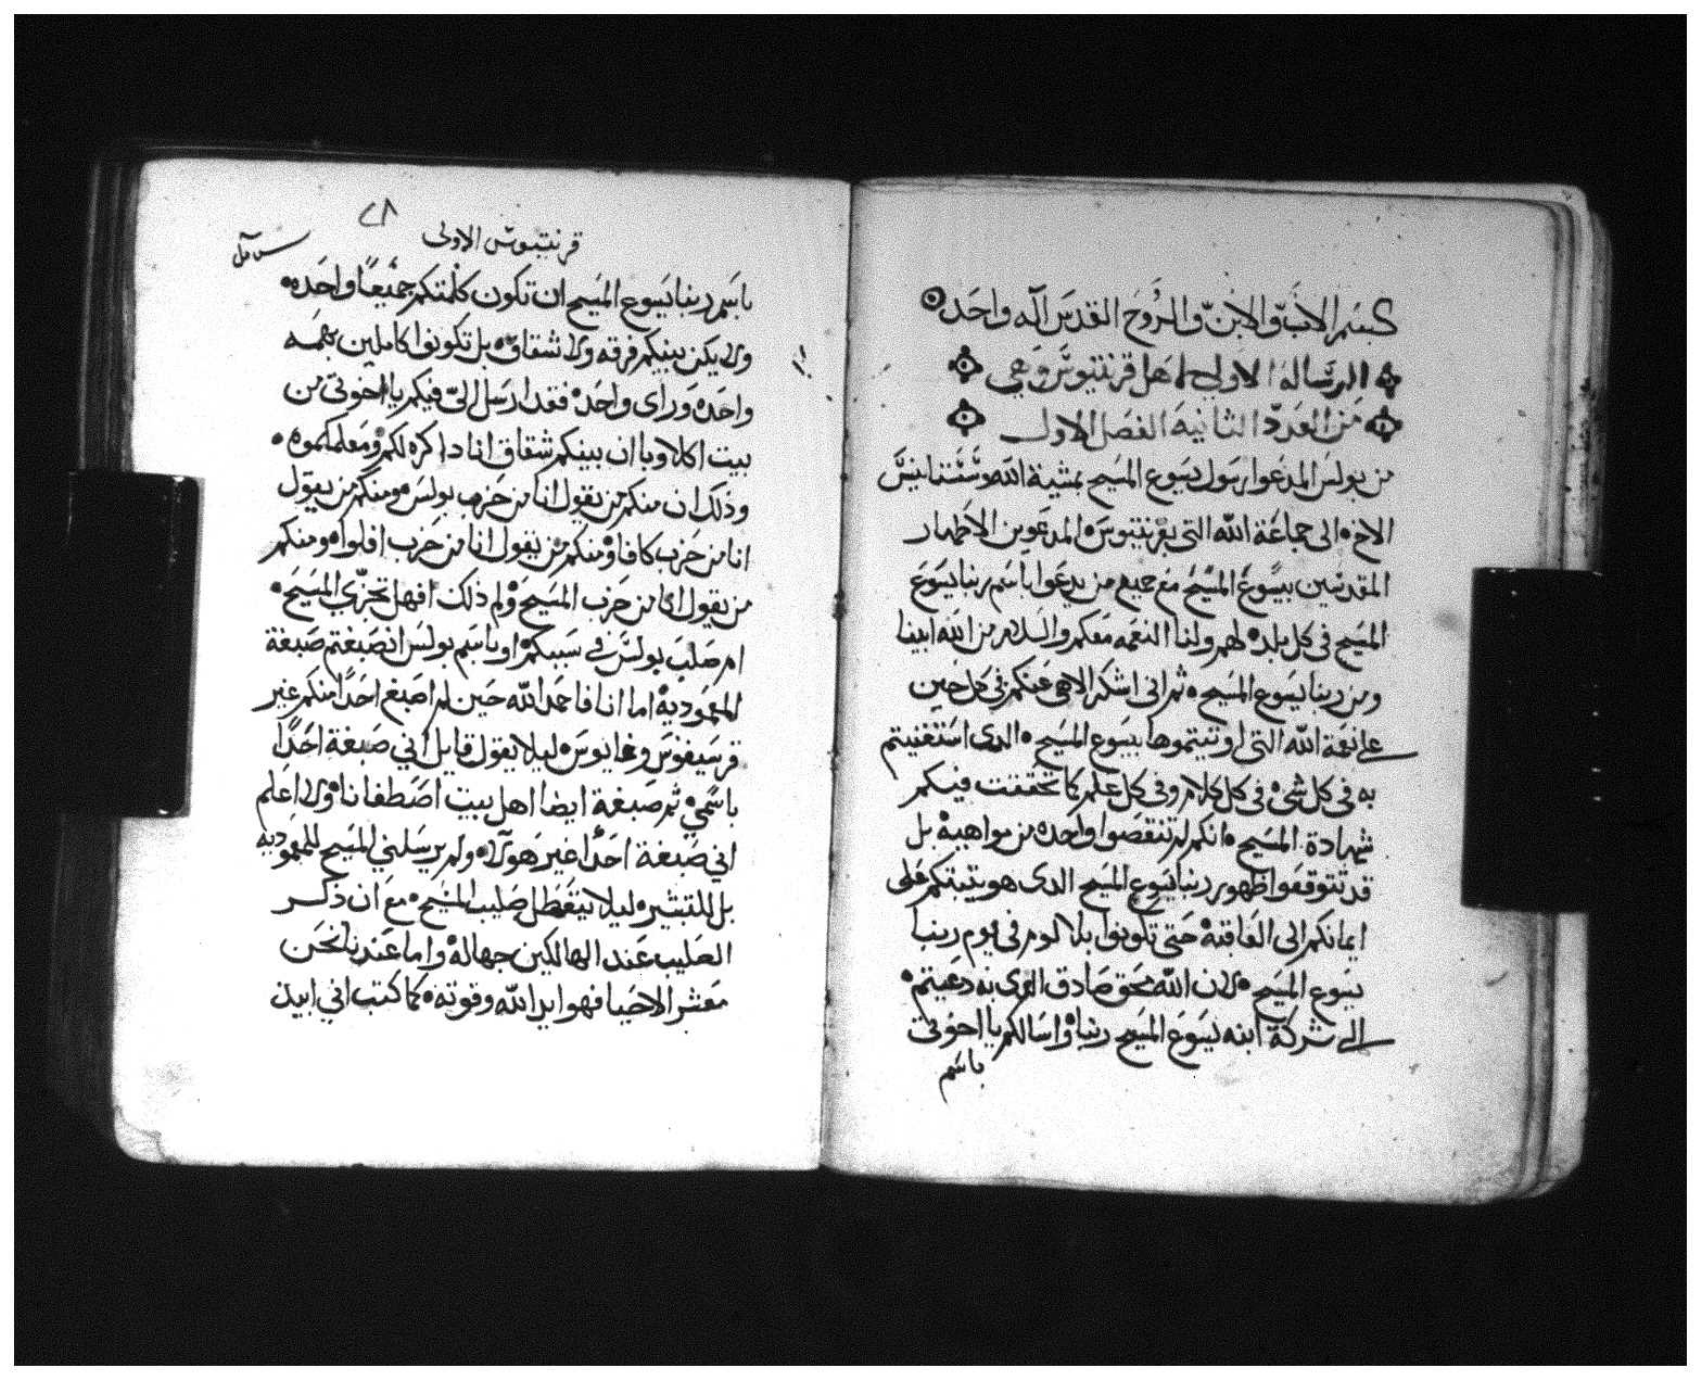 بسم الاب والابن والروح القدس اله واحد
الرساله الاولي الي اهل قرنتيوس وهي
من العدد الثانيه الفصل الاول
من بولس المدعوا رسول يسوع المسيح بمشية الله وسستنايس
الاخ الى جماعة الله التى بقرنتيوس المدعوين الاطهار
المقدسين بيسوع المسيح مع جميع من يدعوا باسم ربنا يسوع
المسيح فى كل بلده لهم ولنا النعمه معكم والسلام من الله ابينا
ومن ربنا يسوع المسيح ثم انى اشكر الاهى عنكم في كل حين
على نعمة الله التى اوتيتموها بيسوع المسيح الدى استغنيتم
به فى كل شى فى كل كلام وفى كل علم كما تحققت فيكم
شهادة المسيح انكم لم تنقصوا واحده من مواهبه بل
قد تتوقعوا ظهور ربنا يسوع المسيح الدى هو يتبتكم على
ايمانكم الى العاقبه حتى تكونوا بلا لوم فى يوم ربنا
يسوع المسيح لان الله محق صادق الدى به دعيتم
الى شركة ابنه يسوع المسيح ربنا واسالكم يا اخوتى
باسم
٢٨
قرنتيوس الاولى
باسم ربنا يسوع المسيح ان تكون كلمتكم جميعًا واحده
ولا يكن بينكم فرقه ولا شقاق بل تكونوا كاملين بهمه
واحده وراى واحده فقد ارسل الىّ فيكم يا اخوتى من
بيت اكلاويا ان بينكم شقاق انا داكره لكم ومعلمكموه
وذلك ان منكم من يقول انا من حزب بولس ومنكم من يقول
انا من حزب كافا ومنكم من يقول انا من حزب افلوا ومنكم
من يقول انا من حزب المسيح ولم ذلك افهل تجزي المسيح
ام صلب بولس في سببكم او باسم بولس انصبغتم صبغة
المعموديه اما انا فاحمد الله حين لم اصبغ احدًا منكم غير
قرسيفوس وغايوس ليلا يقول قايل اني صبغة احدًا
باسمي ثم صبغة ايضا اهل بيت اصطفانا ولا اعلم
اني صبغة احدًا غير هولا ولم يرسلني المسيح للمعموديه
بل للتبشير ليلا يتعطل صليب المسيح مع ان ذكر
الصليب عند الهالكين جهاله واما عندنا نحن
معشر الاحيا فهو ايد الله وقوته كما كتب اني ابيد